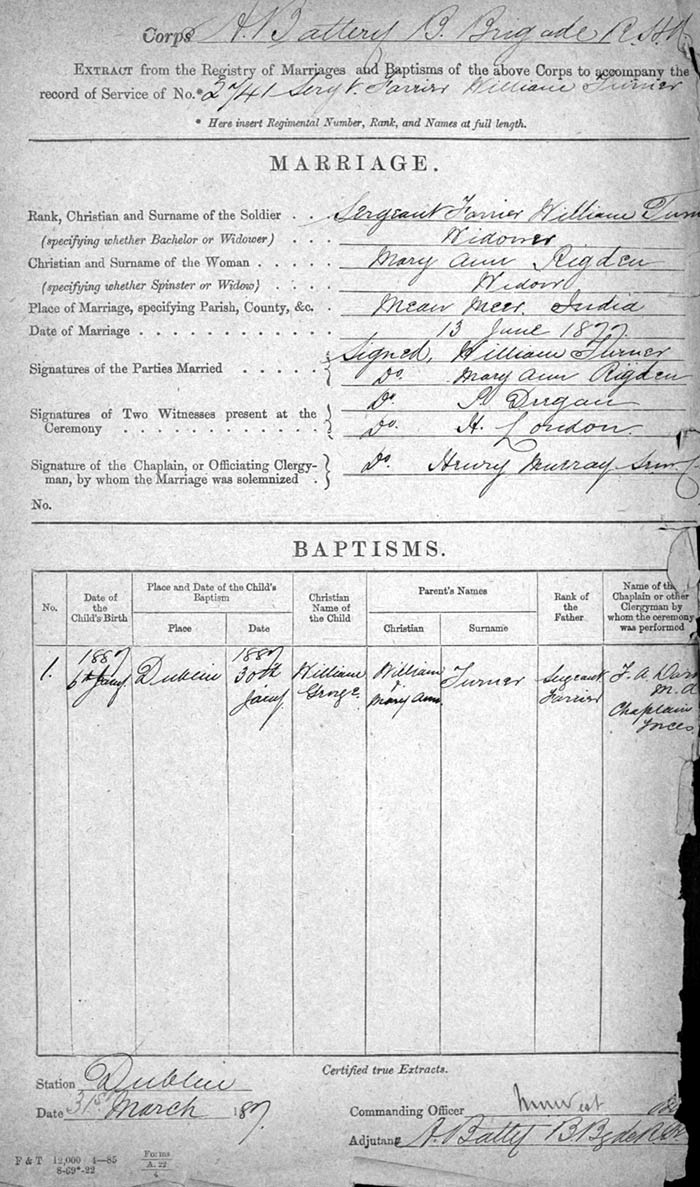 Corps A. Battery B. Brigade R.H.A
EXTRACT from the Registry of Marriages and Baptisms of the above Corps to accompany the
record of Service of No.* 2741 Sergt. Farrier William Turner
* Here insert Regimental Number, Rank, and Names at full length.
MARRIAGE.
Rank, Christian and Surname of the Soldier . . . Sergeant Farrier William Turn
(specifying whether Bachelor or Widower) . . . Widower
Christian and Surname of the Woman . . . . . Mary Ann Rigden
(specifying whether Spinster or Widow) . . . . Widow
Place of Marriage, specifying Parish, County, &c. . Mean Meer. India
Date of Marriage . . . . . . . . . . . . 13 June 1877.
Signatures of the Parties Married . . . . . Signed, William Turner
Do. Mary Ann Rigden
Signatures of Two Witnesses present at the Do.
Ceremony . . . . . . . . . . . . Do. H. London.
Signature of the Chaplain, or Officiating Clergy- Do. Henry Murray
man, by whom the Marriage was solemnized .
No.
BAPTISMS.
No.
Date of the Child's Birth
Place and Date of the Child's Baptism
Place
Date
Christian Name of the Child
Parent's Names
Christian
Surname
Rank of the Father
Name of the Chaplain or other Clergyman by whom the ceremony was performed
1. 1887 6th Jany. Dublin 1887 30th Jany William George. William & Mary Ann Turner Sergeant Farrier F. A. M.A Chaplain Forces
Certified true Extracts.
Station Dublin
Date 31st March 1887
Commanding Officer
Adjutant A. Batty B. Bgde R.H.A
F & T 12,000 4—85
8-69*-22
Forms
A. 22
4